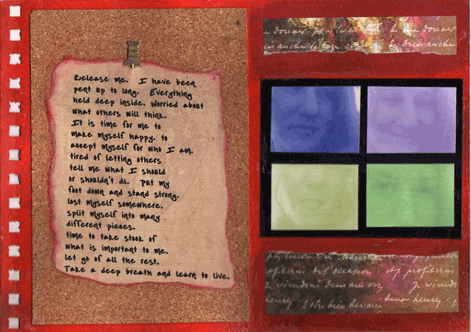 Release me. I have been
pent up to long. Everything
held deep inside. Worried about
what others will think.
It is time for me to
make myself happy. to
accept myself for who I am.
tired of letting others
tell me what I should
or shouldn't do. Put my
foot down and stand strong.
lost myself somewhere.
split myself into many
different pieces.
time to take stock of
what is important to me.
let go of all the rest.
Take a deep breath and learn to live.